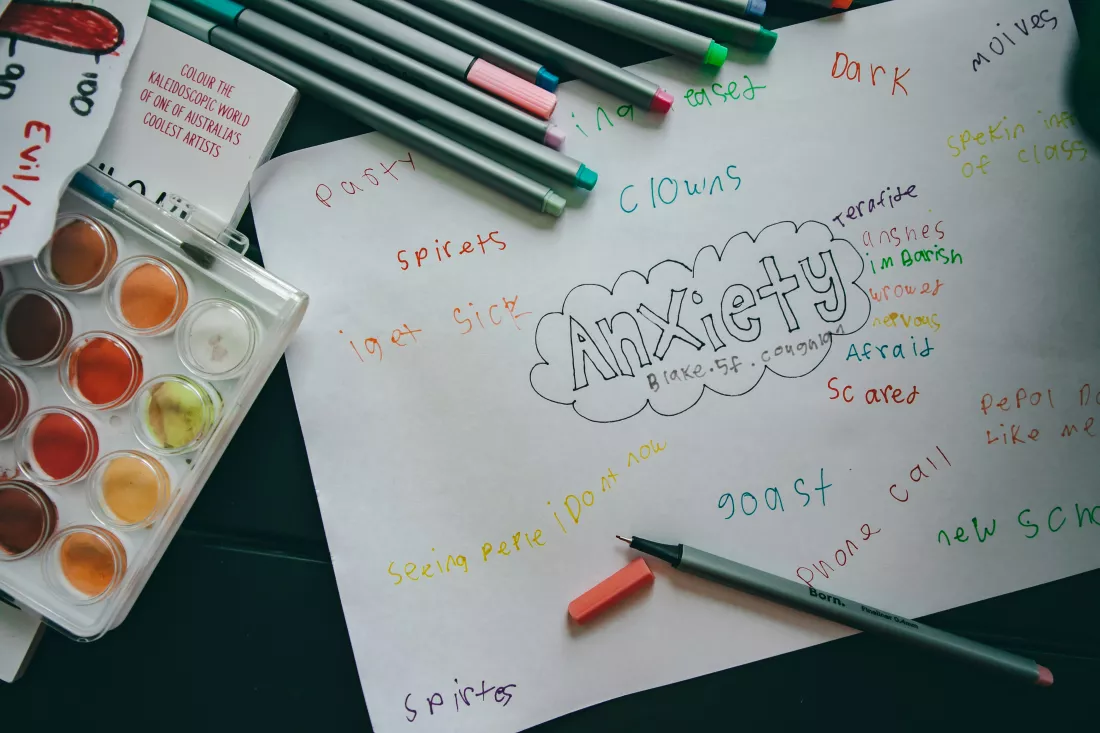 100
90
Evil/
COLOUR THE
KALEIDOSCOPIC WORLD
OF ONE OF AUSTRALIA'S
COOLEST ARTISTS
moives
DARK
ing easet
party
clowns
spekin in
of class
spirets
Terafide
anshes
imBarish
wrowet
nervous
Afraid
scared
iget sick
Anxiety
Blake.5f.
pepol
Like me
seeing peple iDont now
goast
phone call
new
Born.
spirtes